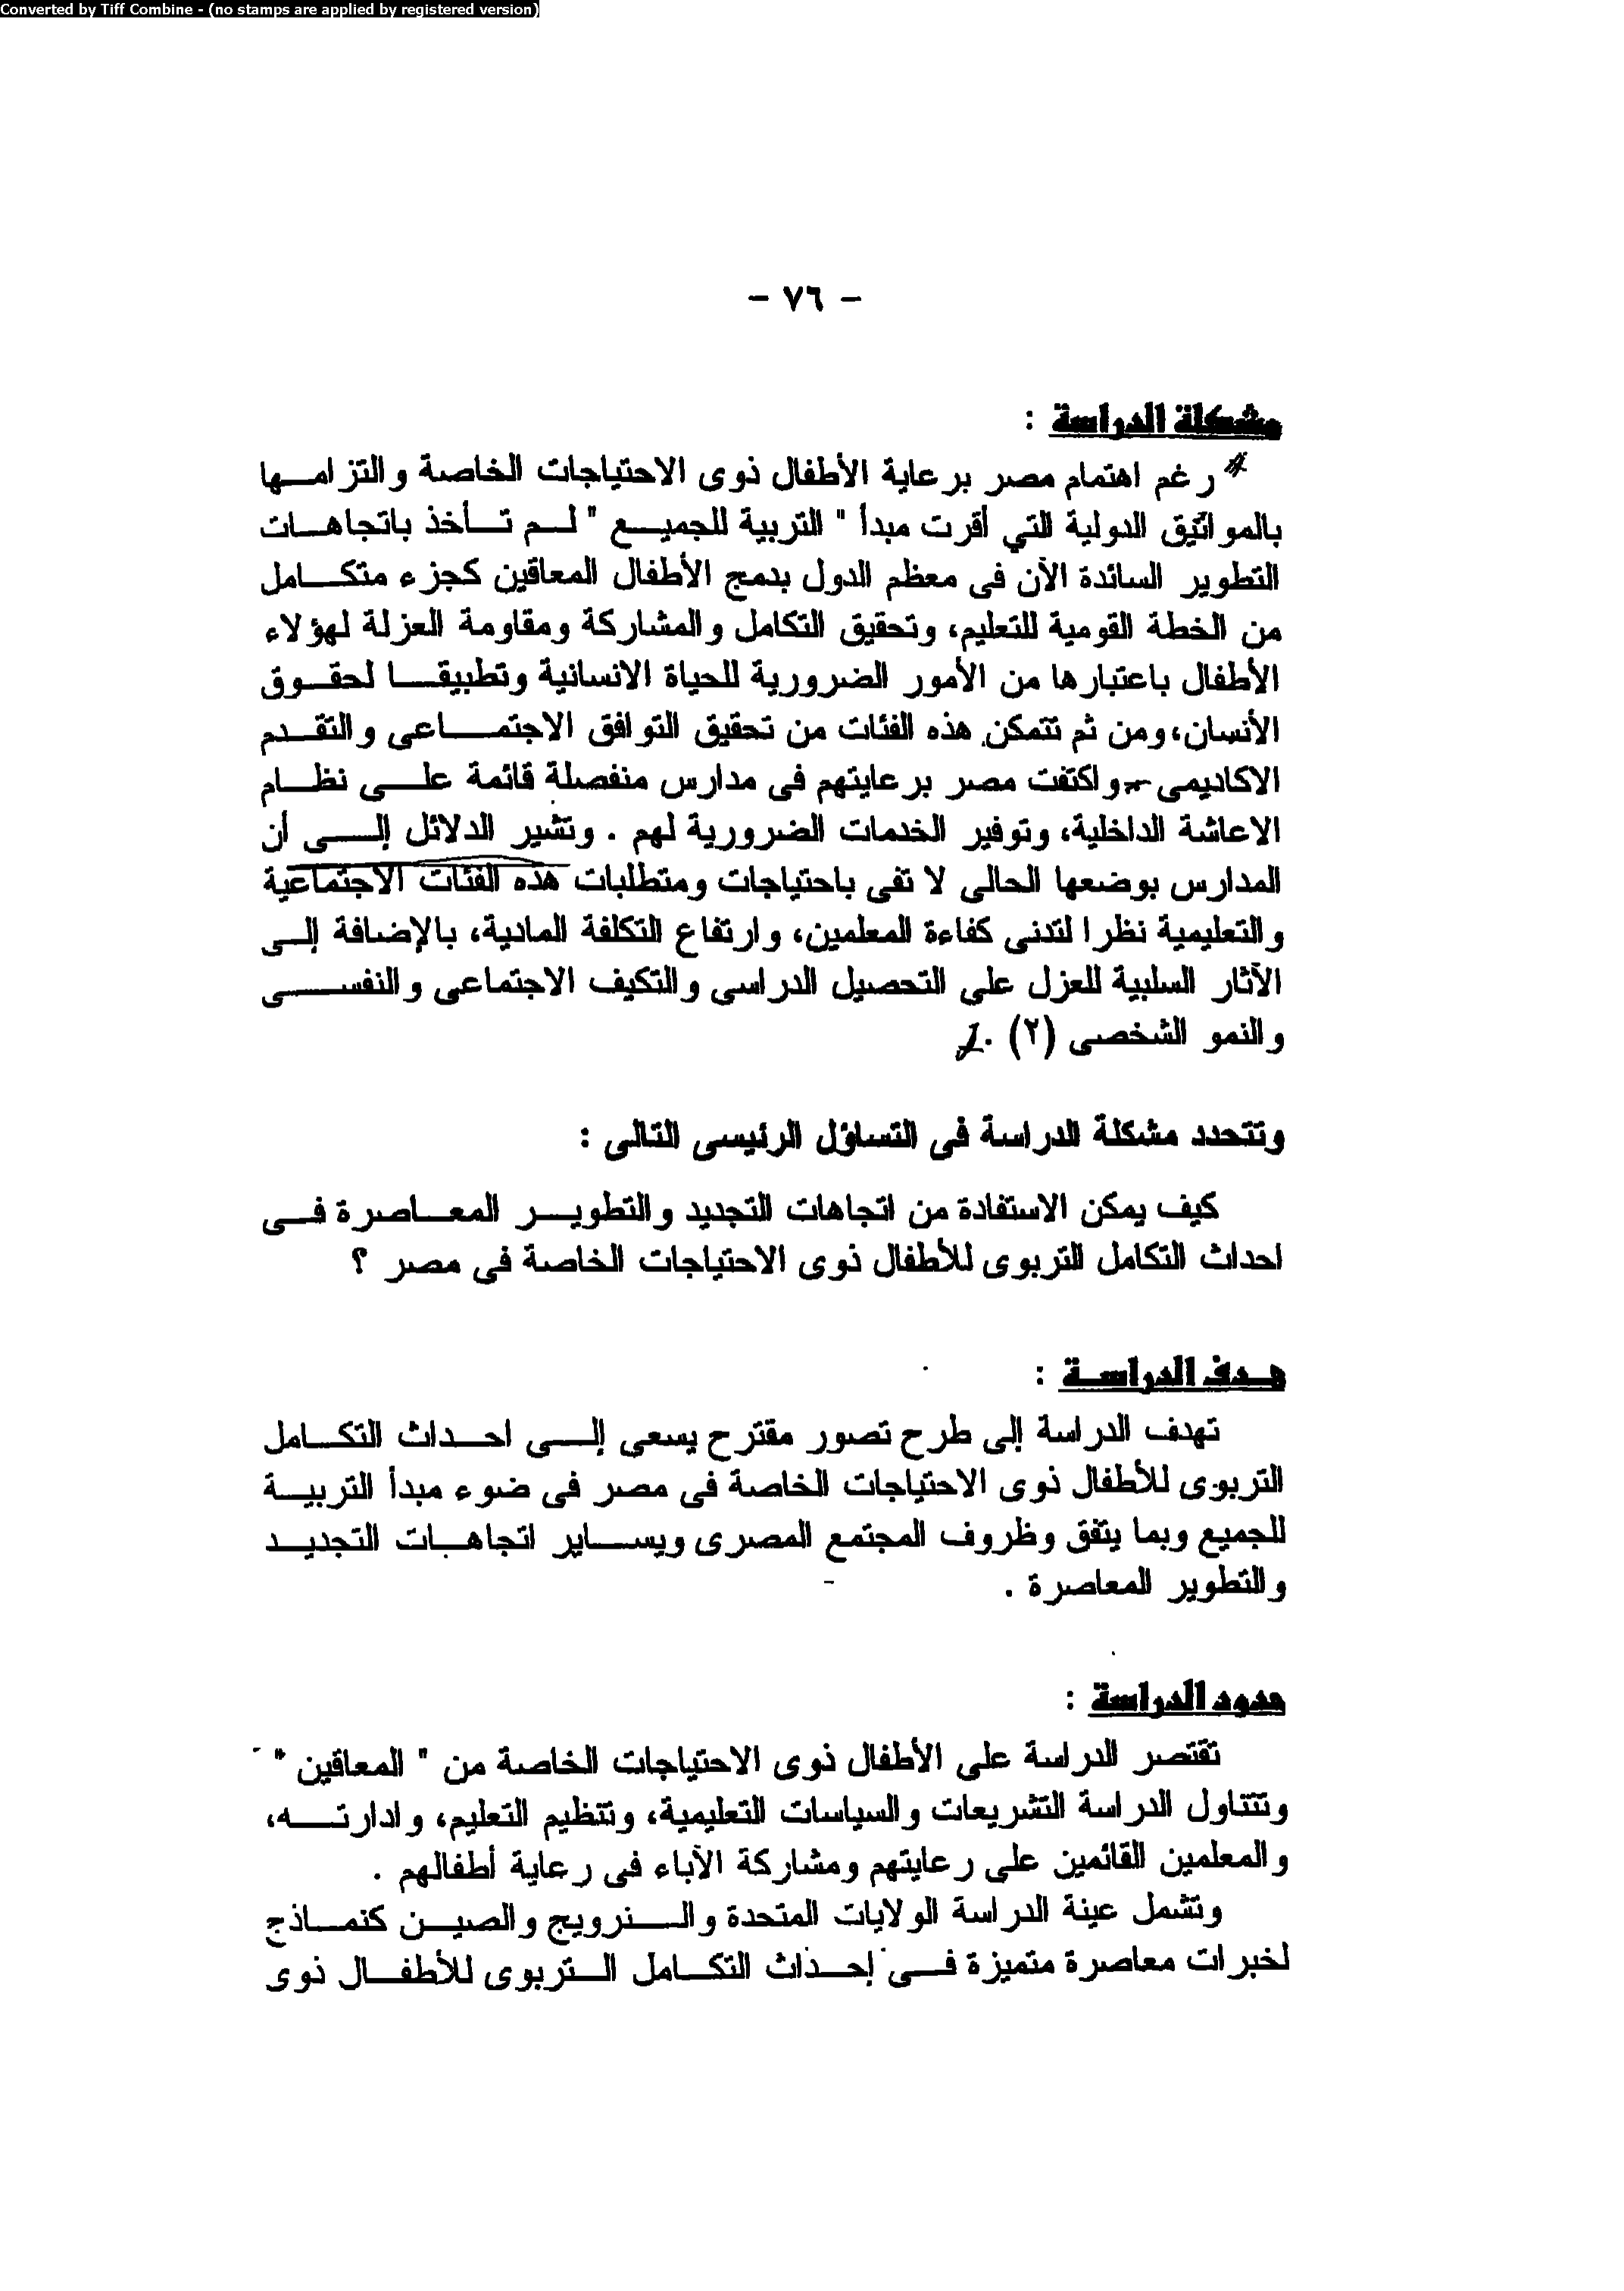 Converted by Tiff Combine - (no stamps are applied by registered version)
- ٧٦ -
مشكلة الدراسة :
رغم اهتمام مصر برعاية الأطفال ذوى الاحتياجات الخاصة والتزامها
بالمواثيق الدولية التي أقرت مبدأ " التربية للجميع " لم تأخذ باتجاهات
التطوير السائدة الآن فى معظم الدول بدمج الأطفال المعاقين كجزء متكامل
من الخطة القومية للتعليم، وتحقيق التكامل والمشاركة ومقاومة العزلة لهؤلاء
الأطفال باعتبارها من الأمور الضرورية للحياة الانسانية وتطبيقا لحقوق
الأنسان، ومن ثم تتمكن هذه الفئات من تحقيق التوافق الاجتماعى والتقدم
الاكاديمى - واكتفت مصر برعايتهم فى مدارس منفصلة قائمة على نظام
الاعاشة الداخلية، وتوفير الخدمات الضرورية لهم . وتشير الدلائل إلى أن
المدارس بوضعها الحالى لا تفى باحتياجات ومتطلبات هذه الفئات الاجتماعية
والتعليمية نظرا لتدنى كفاءة المعلمين، وارتفاع التكلفة المادية، بالإضافة إلى
الآثار السلبية للعزل على التحصيل الدراسى والتكيف الاجتماعى والنفسى
والنمو الشخصى (٢) .
وتتحدد مشكلة الدراسة فى التساؤل الرئيسى التالى :
كيف يمكن الاستفادة من اتجاهات التجديد والتطوير المعاصرة فى
احداث التكامل التربوى للأطفال ذوى الاحتياجات الخاصة فى مصر ؟
هدف الدراسة :
تهدف الدراسة إلى طرح تصور مقترح يسعى إلى احداث التكامل
التربوى للأطفال ذوى الاحتياجات الخاصة فى مصر فى ضوء مبدأ التربية
للجميع وبما يتفق وظروف المجتمع المصرى ويساير اتجاهات التجديد
والتطوير المعاصرة .
حدود الدراسة :
تقتصر الدراسة على الأطفال ذوى الاحتياجات الخاصة من " المعاقين "
وتتناول الدراسة التشريعات والسياسات التعليمية، وتنظيم التعليم، وادارته،
والمعلمين القائمين على رعايتهم ومشاركة الآباء فى رعاية أطفالهم .
وتشمل عينة الدراسة الولايات المتحدة والنرويج والصين كنماذج
لخبرات معاصرة متميزة فى إحداث التكامل التربوى للأطفال ذوى